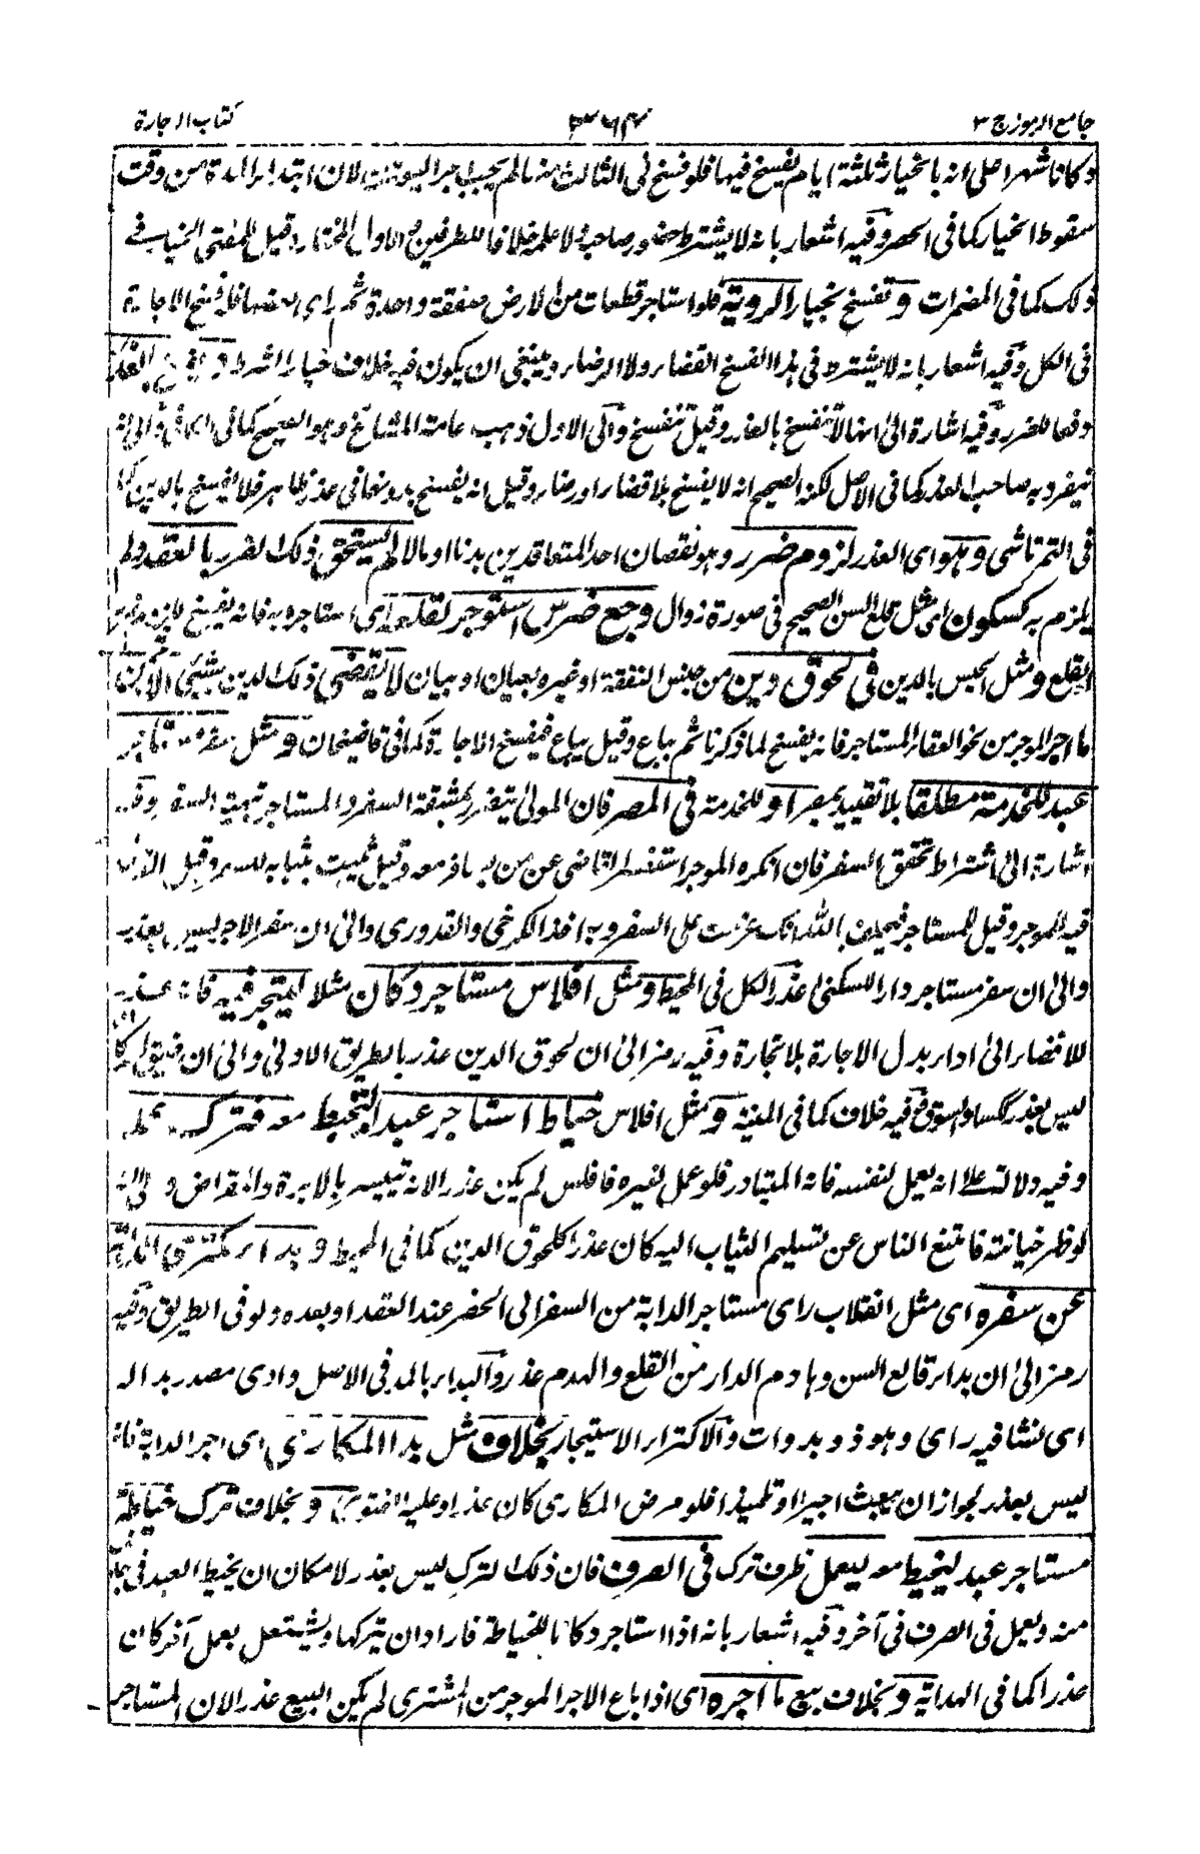 جامع الرموز ج ٣
٣٦٤
كتاب الاجارة
دكانا شهرا على انه بالخيار ثلثة ايام يفسخ فيها فلو فسخ فى الثالث منها لم يجب اجر اليومين لان ابتداء المدة من وقت
سقوط الخيار كما فى وفيه اشعار بانه لا يشترط حضور صاحبه ولا علمه خلافا للطرفين والاول المختار وقيل للمفتى الخيار فى
ذلك كما فى المضمرات وتفسخ بخيار الروية فلو استاجر قطعات من الارض صفقة واحدة ثم راى بعضها فله فسخ الاجارة
فى الكل وفيه اشعار بانه لا يشترط فى هذا الفسخ القضاء ولا الرضاء وينبغى ان يكون فيه خلاف خيار الشرط وتفسخ بالعذر
دفعا للضرر وفيه اشارة الى انها لا تنفسخ بالعذر وقيل تنفسخ والى الاول ذهب عامة المشائخ وهو الصحيح كما فى والى انه
يتفرد به صاحب العذر كما فى الاصل لكنه الصحيح انه لا يفسخ بلا قضاء او رضاء وقيل انه يفسخ بدونها فى عذر ظاهر فلا يفسخ بالدين كما
فى التمرتاشى وهو اى العذر لزوم ضرر وهو نقصان احد المتعاقدين بدنا او مالا لم يستحق ذلك الضرر بالعقد ولم
يلزم به كسكون اى مثل قلع السن الصحيح فى صورة زوال وجع ضرس استوجر لقلعه اى استاجره به فانه يفسخ
القلع ومثل الحبس بالدين فى لحوق دين من جنس النفقة او غيره بعيان او بيان لا يقضى ذلك الدين بشئ الا بثمن
ما اجر الموجر من نحو العقار المستاجر فانه يفسخ لما ذكرنا ثم يباع وقيل يباع فيفسخ الاجارة كما فى قاضيخان ومثل سفر مستاجر
عبد للخدمة مطلقا بلا تقييد بمصر او للخدمة فى المصر فان المولى يتضرر بمشقة السفر والمستاجر وفيه
اشارة الى اشتراط تحقق السفر فان انكره الموجر استفسر القاضى عن من يسافر معه وقيل ثيابه للسفر وقيل القول
فيه للموجر وقيل للمستاجر فيحلف بالله انك عزمت على السفر وبه اخذ الكرخى والقدورى والى ان سفر الاجر ليس بعذر
والى ان سفر مستاجر دار للسكنى عذر الكل فى المحيط ومثل افلاس مستاجر دكان مثلا ليتجر فيه فانه عذر
للافضاء الى اداء بدل الاجارة بلا تجارة وفيه رمز الى ان لحوق الدين عذر بالطريق الاولى والى ان
ليس بعذر ككساد السوق وفيه خلاف كما فى المنية ومثل افلاس خياط استاجر عبدا ليخيط معه فترك عمله
وفيه دلالة على انه يعمل لنفسه فانه المتبادر فلو عمل لغيره فافلس لم يكن عذرا لانه تيسر بالابرة والمقراض والى انه
لو ظهر خيانته فامتنع الناس عن تسليم الثياب اليه كان عذرا كلحوق الدين كما فى المحيط وبداء مكترى الدابة
عن سفره اى مثل انقلاب راى مستاجر الدابة من السفر الى الحضر عند العقد او بعده ولو فى الطريق وفيه
رمز الى ان بداء قالع السن وهادم الدار من القلع والهدم عذر والبداء بالمد فى الاصل وادى مصدر بدا له
اى نشا فيه راى وهو ذو بدوات والاكتراء الاستيجار بخلاف مثل بدا المكارى اى اجر الدابة فانه
ليس بعذر لجواز ان يبعث اجيرا او تلميذا فلو مرض المكارى كان عذرا وعليه الفتوى وبخلاف ترك خياطة
مستاجر عبد ليخيط معه ليعمل ظرف ترك فى الصرف فان ذلك الترك ليس بعذر لامكان ان يخيط العبد فى
منه ويعمل فى الصرف فى آخر وفيه اشعار بانه اذا استاجر دكانا للخياطة فاراد ان يتركها ويشتغل بعمل آخر كان
عذرا كما فى الهداية وبخلاف بيع ما اجره اى اذا باع الاجر الموجر من المشترى لم يكن البيع عذرا لان المستاجر